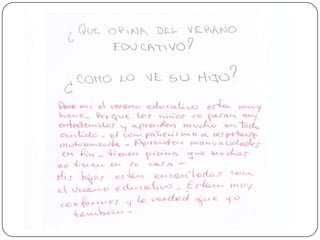 ¿QUE OPINA DEL VERANO
EDUCATIVO?
¿COMO LO VE SU HIJO?
Para mi el verano educativo esta muy
bueno - Porque los niños se pasan muy
entretenidos y aprenden mucho en todo
sentido - el compañerismo a respetarse
mutuamente - Aprenden manualidades
en fin - tienen picina que muchos
no tienen en su casa -
Mis hijos estan encantados con
el verano educativo - Estan muy
conformes y la verdad que yo
tambien -